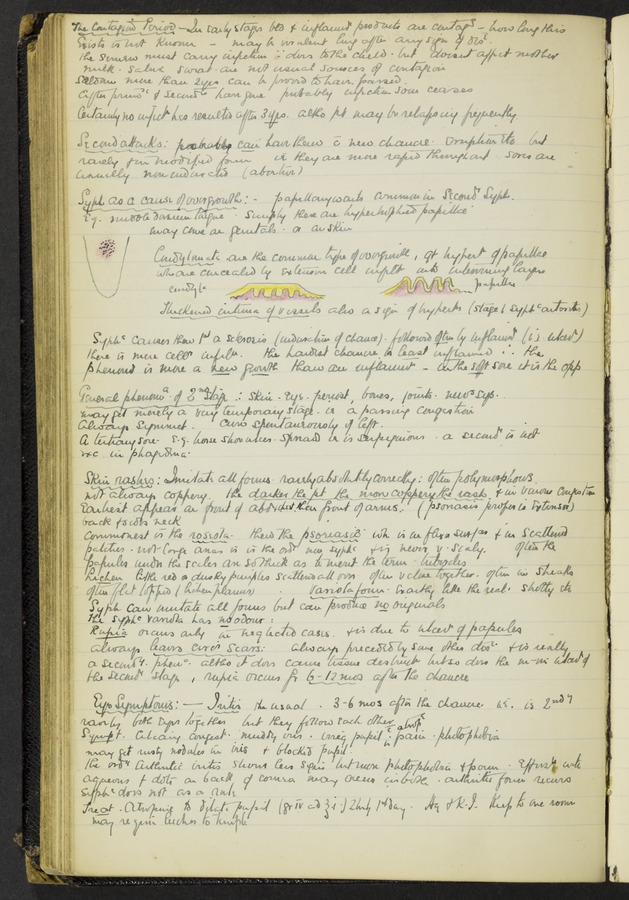 The Contagious Period – In early stages bld & inflamd products are contags – how long this
exists is not known – may be virulent long after any sign of diso
the semen must carry infection : does to the child . but doesnt affect mother
milk . saliva sweat are not usual sources of contagion
seldom more than 2 yrs can be proved to have passed .
After prims & secondy have gone probably infection soon ceases
Certainly no infectn has resulted after 3 yrs. altho pt may be relapsing frequently
Second attacks : probably can have them c new chancre . Eruption etc but
rarely & in modified form . they are more rapid throughout . sores are
usually non indurated (abortive)
Syph as a cause of overgrowth : – papillary warts common in Secondy Syph .
Eg. mucous tongue Simply these are hypertrophied papillae
may come on genitals . or on skin
Condylomata are the common type of overgrowth , of hypert of papillae
who are concealed by extension cell infilt into intervening layers
condyla papillae
Thickened intima of vessels also a sign of hyperts (stage 1 Syphc arteritis)
Syphc causes then 1st a sclerosis (induration of chancre) . followed often by inflamn (is ulcerd)
there is mere cellr infiln . the hardest chancre is least inflamed ∵ the
phenomd is more a new growth than an inflamnt – in the soft sore it is the opp
General phenoma of 2nd stage : Skin . eyes . periost , bones , joints . nervs sys .
may get merely a very temporary stage . or a passing congestion
Always Symmet . Cures spontaneously if left .
A tertiary sore e.g. horse shoe ulcer . spreads & is serpiginous . a second is not
exc. in phagedena
Skin rashes : Imitate all forms rarely absolutely correctly : often polymorphous
not always coppery . the darker the pt the more coppery the rash & in venous Congestion
Earliest appears on front of abdo & then front of arms . (psoriasis proper is Extensor)
back & sides neck
commonest is the roseola . then the psoriasis wh is on flexor surfs & in scattered
patches . not large areas as is the ordy non syphc & is never v. scaly . often the
papules under the scales are so thick as to merit the term . tubercles
Lichen like red & dusky pimples scattered all over often v close together . often in streaks
often flat topped (lichen planus) . Variola form . exactly like the real . shotty etc
Syph can imitate all forms but can produce no originals
the Syphc variola has no odour :
Rupia occurs only in neglected cases . & is due to ulcern of papules
always leaves circr scars . always preceded by some other diso & is really
a secondy phena . altho it does cause tissue destructn but so does the ulcern of
the second stage , rupia occurs fr 6–12 mos after the chancre
Eye Symptoms : – Iritis the usual . 3–6 mos after the chancre is 2ndy
rarely both eyes together but they follow each other
Sympt . Ciliary congest . muddy iris . irreg pupil pain . photophobia
may get rusty nodules in iris & blocked pupil .
the ordy rheumatic iritis shows less signs but more photophobia & pain . Effusn into
aqueous & dots on back of cornea may occur in both . arthritic form recurs
Syphc does not as a rule
Treat . Atropine to dilate pupil (gr iv ad ℥i) 2hrly 1st day . Hg & K.I. Keep to one room
may require leeches to temple